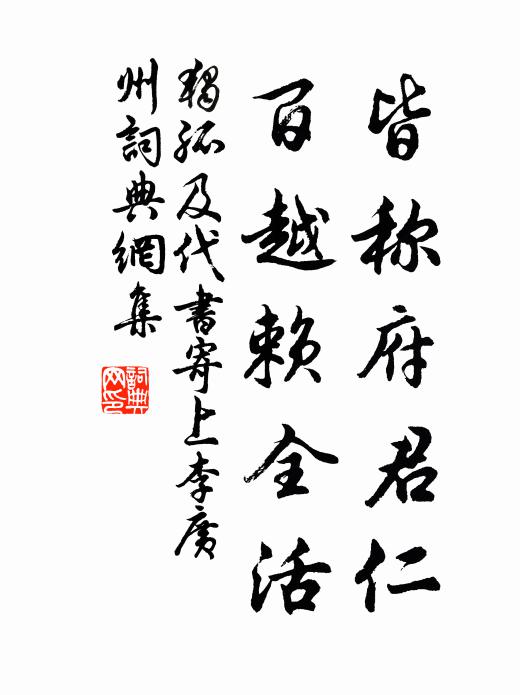 皆称府君仁
百越赖全活
獨孤及代書寄上李廣
州詞典網集
詞典
网印